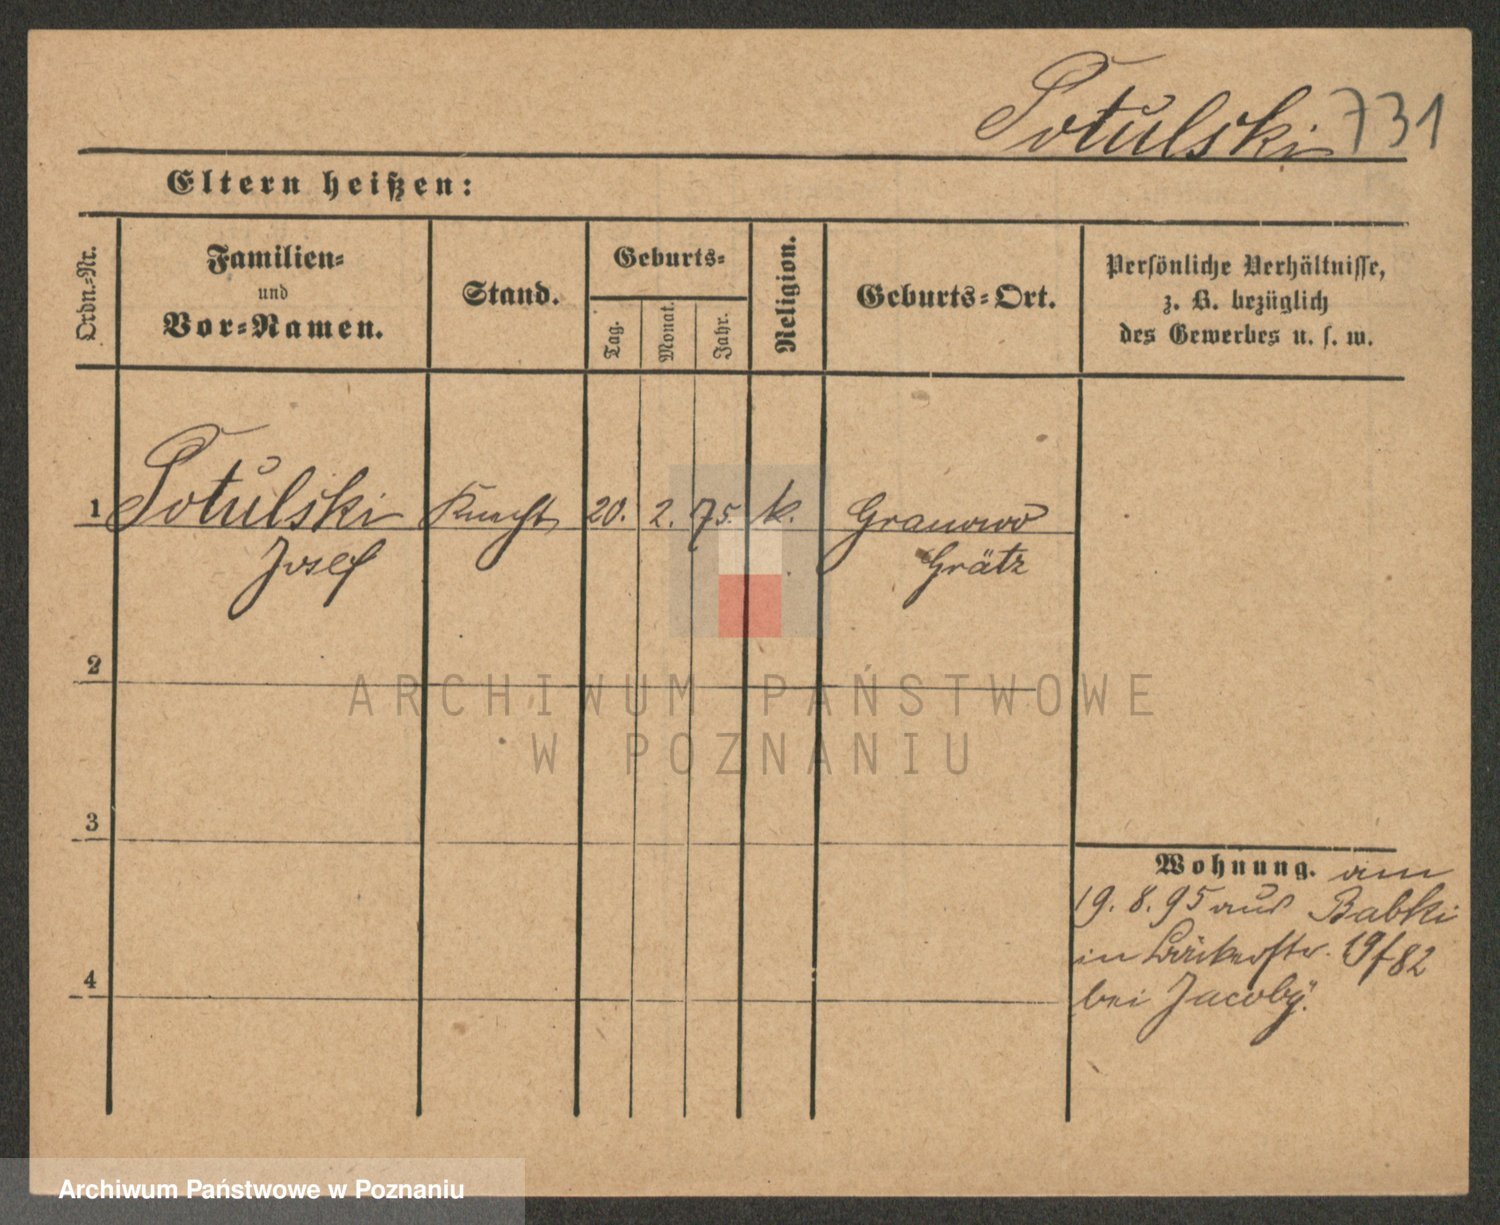 Potulski 731
Eltern heißen:
Ordn.-Nr.
Familien-
und
Vor-Namen.
Stand.
Geburts-
Tag.
Monat.
Jahr.
Religion.
Geburts-Ort.
Persönliche Verhältnisse,
z. B. bezüglich
des Gewerbes u. s. w.
1 Potulski Knecht 20. 2. 75. k. Granowo
Josef Grätz
2
ARCHIWUM PAŃSTWOWE
W POZNANIU
3
Wohnung. am
19. 8. 95 aus Babki
in 19/82
4
bei Jacoby.
Archiwum Państwowe w Poznaniu